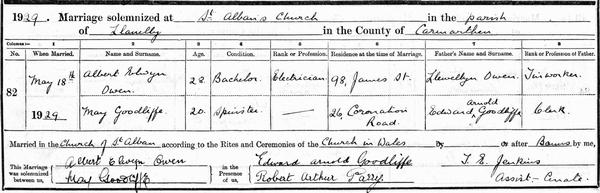 1929. Marriage solemnized at St. Alban's Church in the parish
of Llanelly in the County of Carmarthen
Columns:— 1 2 3 4 5 6 7 8
No. When Married. Name and Surname. Age. Condition. Rank or Profession. Residence at the time of Marriage. Father's Name and Surname. Rank or Profession of Father.
82 May 18th 1929 Albert Elwyn Owen. 28. Bachelor. Electrician 98, James St. Llewellyn Owen. Tinworker.
May Goodliffe. 20. Spinster. — 26, Coronation Road. Edward Arnold Goodliffe. Clerk.
Married in the Church of St Alban according to the Rites and Ceremonies of the Church in Wales by or after Banns by me,
This Marriage was solemnized between us, Albert Elwyn Owen May Goodliffe in the Presence of us, Edward Arnold Goodliffe Robert Arthur Parry. T. E. Jenkins Assist-Curate.